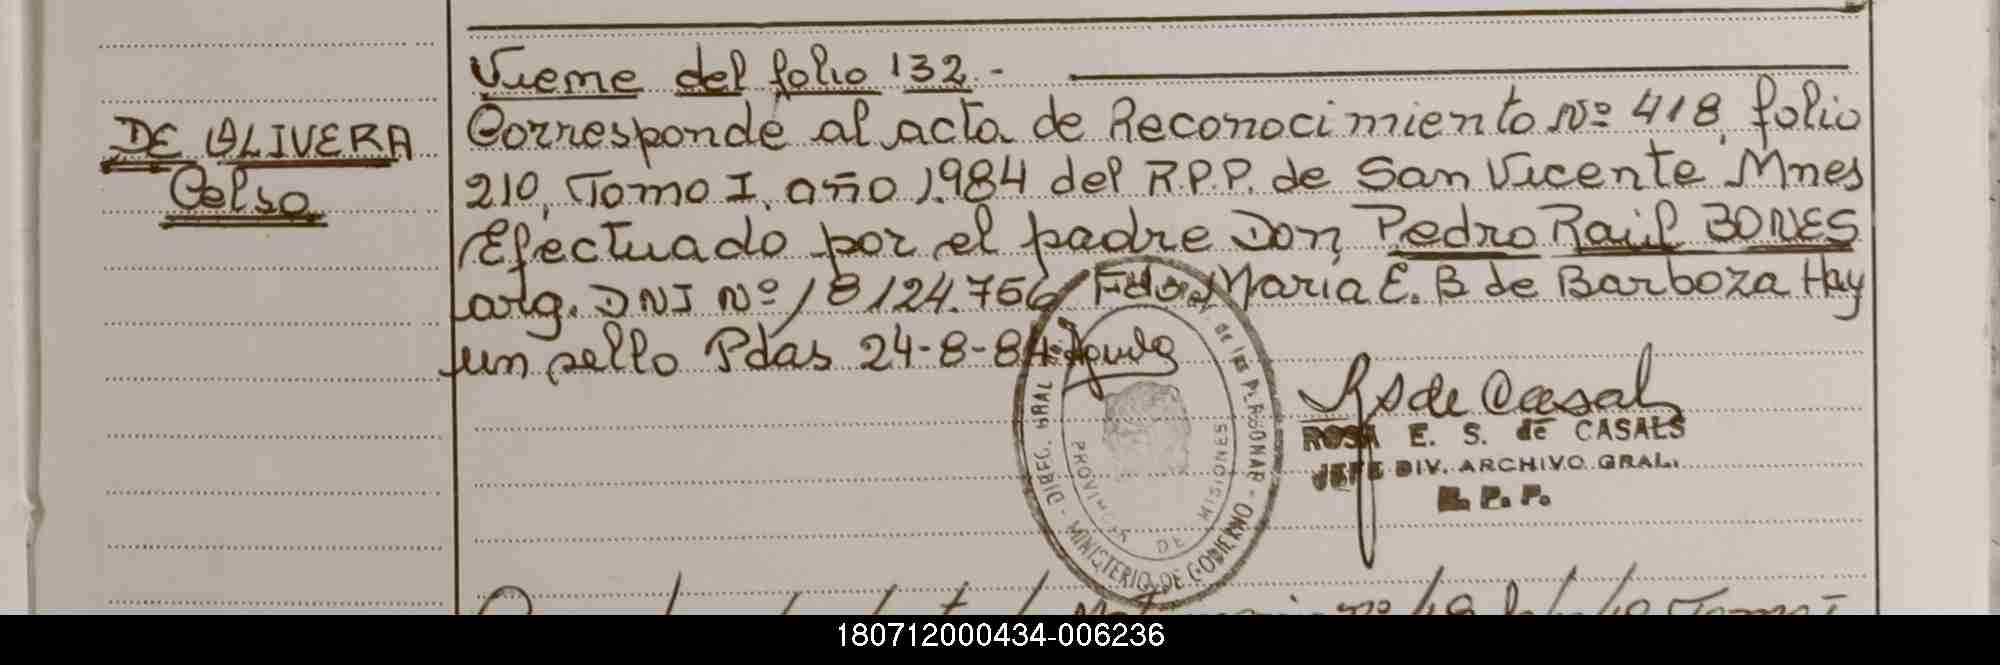 Vieme del folio 132.-
DE OLIVERA
Celso
Corresponde al acta de Reconocimiento Nº 418, folio
210, Tomo I, año 1.984 del R.P.P. de San Vicente Mnes
Efectuado por el padre Don, Pedro Raúl BONES
arg. DNI Nº 18124.756 Fdo. María E. B de Barboza Hay
un sello Pdas 24-8-84.
S de Casal
ROSA E. S. de CASALS
JEFE DIV. ARCHIVO GRAL.
R. P. P.
DIREC. GRAL de las PERSONAS - MINISTERIO DE GOBIERNO -
PROVINCIA DE MISIONES
180712000434-006236